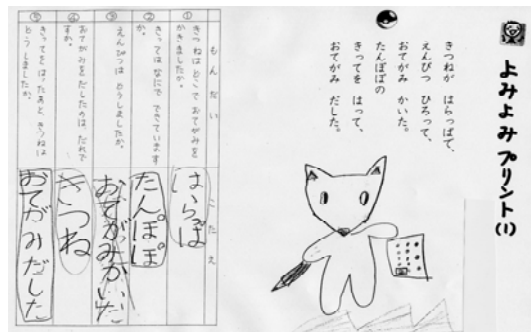 よみよみプリント(1)
きつねが はらっぱで、
えんぴつ ひろって、
おてがみ かいた。
たんぽぽの
きってを はって、
おてがみ だした。
もんだい
こたえ
①
きつねは どこで おてがみを
かきましたか。
はらっぱ
②
きっては なにで できています
か。
たんぽぽ
③
えんぴつは どうしましたか。
おてがみかいた
④
おてがみを だしたのは、だれで
すか。
きつね
⑤
きってを はったあと、きつねは
どうしましたか。
おてがみだした